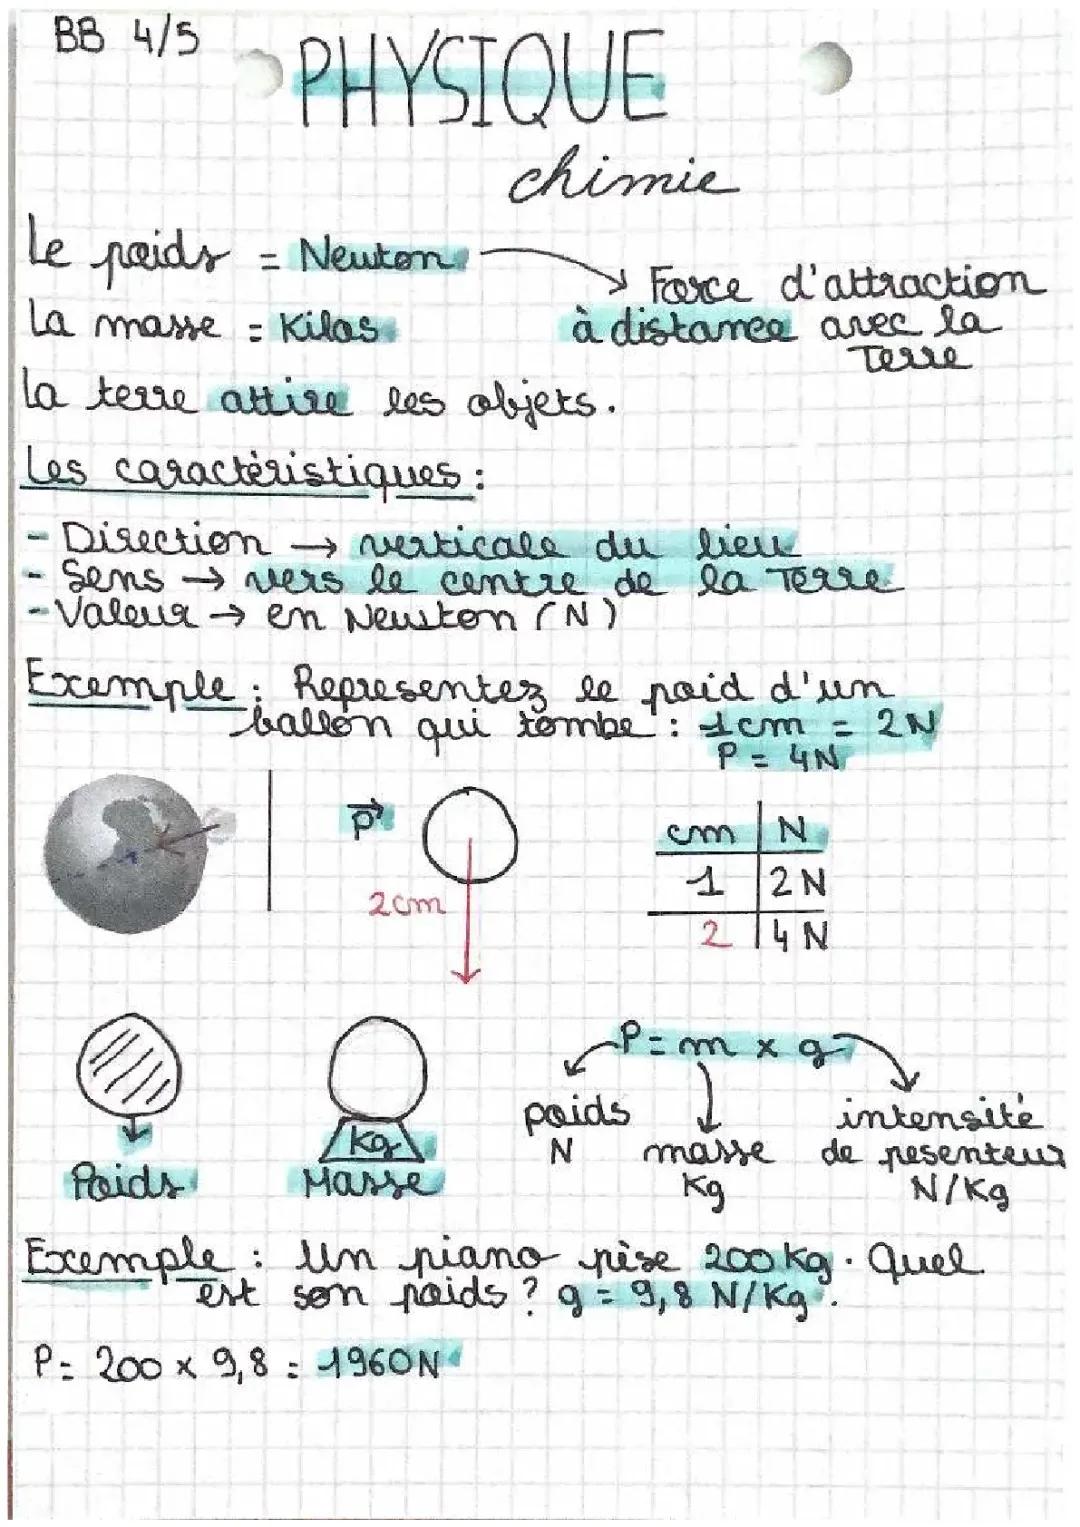 BB 4/5
PHYSIQUE
chimie
Le poids = Newton → Force d'attraction
à distance avec la
Terre
La masse = Kilos
La terre attire les objets.
Les caractéristiques :
- Direction → verticale du lieu
- Sens → vers le centre de la Terre.
- Valeur → en Newston (N)
Exemple : Representez le poid d'un
ballon qui tombe : 1cm = 2N
P = 4N
P
2cm
cm N
1 2N
2 4N
P = m x g
poids
N
masse
Kg
intensité
de pesenteur
N/Kg
Kg
Poids
Masse
Exemple : Un piano pèse 200 kg. Quel
est son poids ? g = 9,8 N/Kg.
P = 200 x 9,8 = 1960N